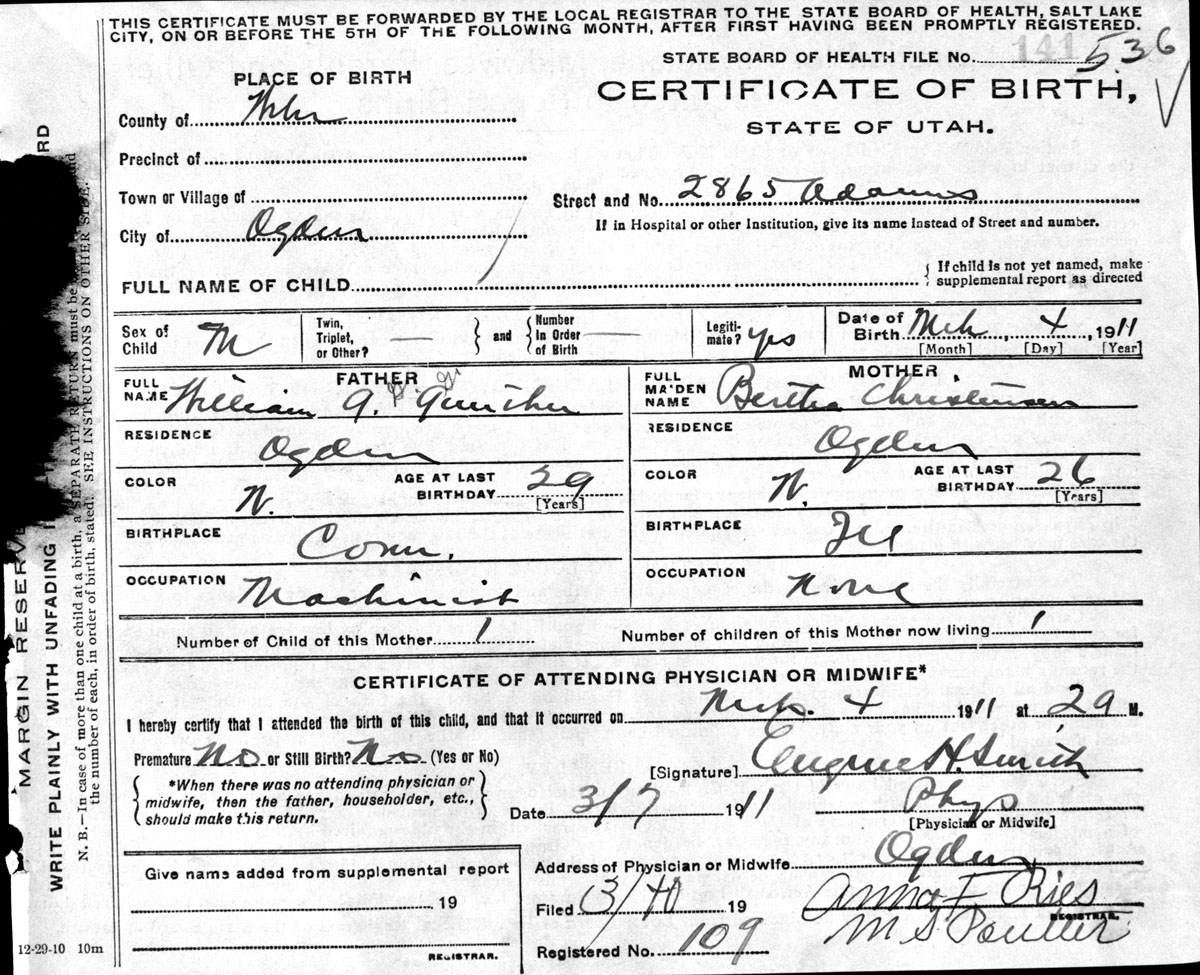 THIS CERTIFICATE MUST BE FORWARDED BY THE LOCAL REGISTRAR TO THE STATE BOARD OF HEALTH, SALT LAKE
CITY, ON OR BEFORE THE 5TH OF THE FOLLOWING MONTH, AFTER FIRST HAVING BEEN PROMPTLY REGISTERED.
STATE BOARD OF HEALTH FILE No. 141 536
PLACE OF BIRTH
CERTIFICATE OF BIRTH,
STATE OF UTAH.
County of
Precinct of
Town or Village of
Street and No. 2865 Adams
City of Ogden
If in Hospital or other Institution, give its name instead of Street and number.
FULL NAME OF CHILD
{ If child is not yet named, make
supplemental report as directed
Sex of Child M
Twin, Triplet, or Other? —
and
Number In Order of Birth —
Legiti-mate? yes
Date of Birth Mch 4, 1911
[Month] [Day] [Year]
FATHER
FULL NAME William G. Gunther
RESIDENCE Ogden
COLOR W.
AGE AT LAST BIRTHDAY 29
[Years]
BIRTHPLACE Conn.
OCCUPATION Machinist
MOTHER
FULL MAIDEN NAME Bertha Christensen
RESIDENCE Ogden
COLOR W.
AGE AT LAST BIRTHDAY 26
[Years]
BIRTHPLACE
OCCUPATION None
Number of Child of this Mother 1
Number of children of this Mother now living 1
CERTIFICATE OF ATTENDING PHYSICIAN OR MIDWIFE*
I hereby certify that I attended the birth of this child, and that it occurred on Mch. 4 1911 at 29 M.
Premature No or Still Birth? No (Yes or No)
*When there was no attending physician or
midwife, then the father, householder, etc.,
should make this return.
[Signature] Eugene H. Smith
Date 3/7 1911
Phys
[Physician or Midwife]
Address of Physician or Midwife Ogden
Give name added from supplemental report
19
REGISTRAR.
Filed 19
Anna F. Ries
REGISTRAR.
M S Poulter
Registered No. 109
12-29-10 10m
MARGIN RESERVE
WRITE PLAINLY WITH UNFADING
RD
N. B.—In case of more than one child at a birth, a SEPARATE RETURN must be
the number of each, in order of birth, stated. SEE INSTRUCTIONS ON OTHER SIDE.